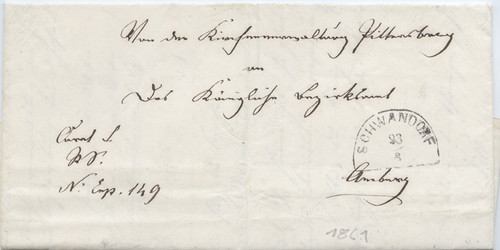 Von der Kirchenverwaltung Pittersberg
an
Das Königliche Bezirksamt
SCHWANDORF
23
8
Amberg
R.S.
N: Exp. 149
1861